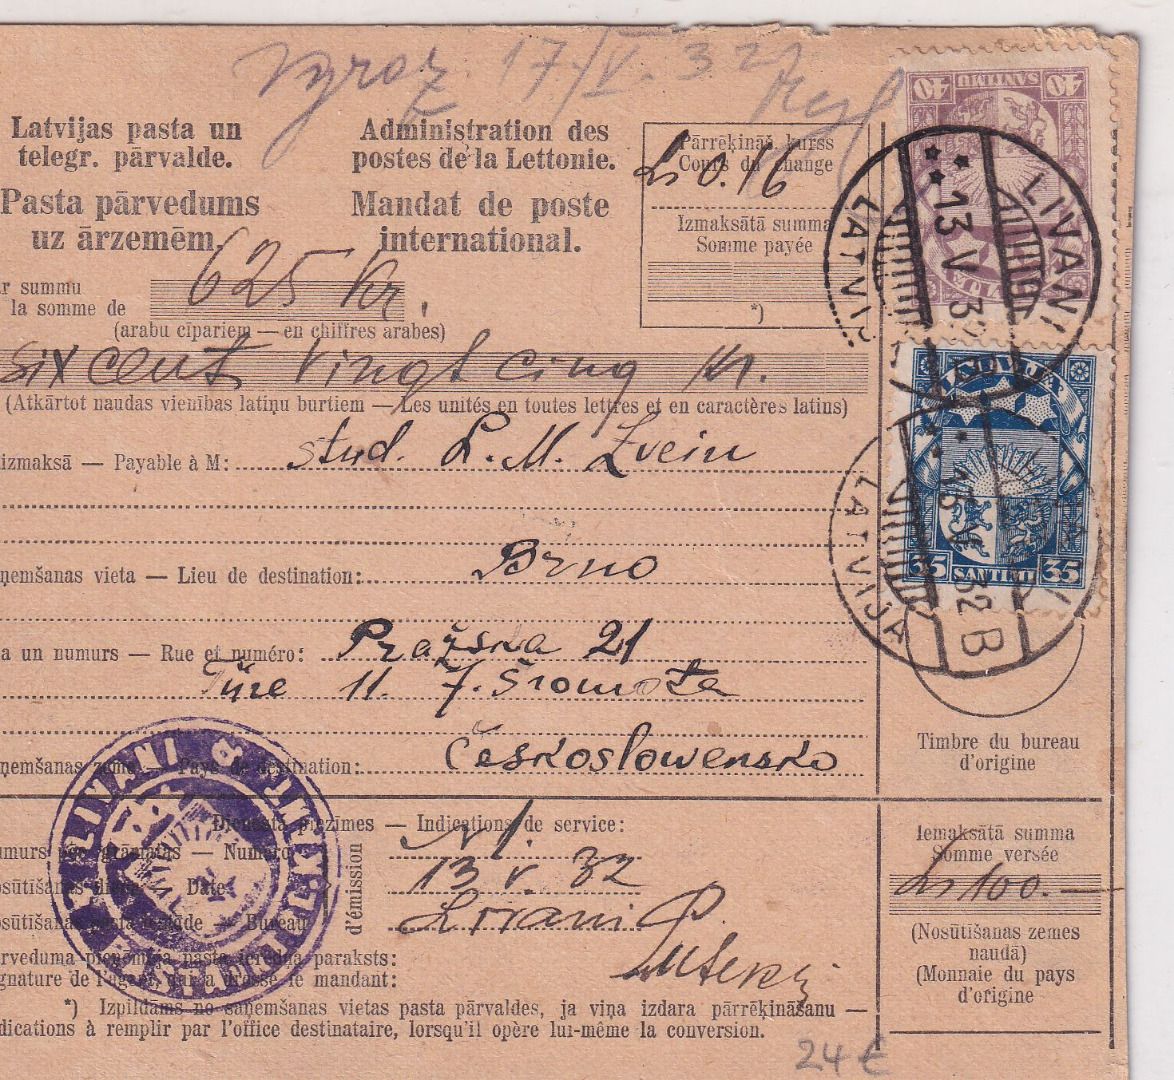 17/V. 32
Latvijas pasta un
telegr. pārvalde.
Pasta pārvedums
uz ārzemēm.
Administration des
postes de la Lettonie.
Mandat de poste
international.
Pārrēķināš. kurss
Cours du change
Ls 0.16
Izmaksātā summa
Somme payée
*)
ar summu
la somme de
625 kr.
(arabu cipariem — en chiffres arabes)
six cent vingt cinq kr.
(Atkārtot naudas vienības latiņu burtiem — Les unités en toutes lettres et en caractères latins)
izmaksā — Payable à M: stud. L. M. Zvein
ņemšanas vieta — Lieu de destination: Brno
a un numurs — Rue et numéro: Pražska 21
11. J.
ņemšanas zeme — Pays de destination: Českoslowensko
40 SANTIMU 40
LIVANI
LATVIJA
13 V 32
LATVIJA
35 SANTIMI 35
LATVIJA
13 V 32 B
Timbre du bureau
d'origine
LIVANI
Dienesta piezīmes — Indications de service:
umurs pēc grāmatas — Numéro
N 1.
osūtīšanas diena — Date
13 V. 32
osūtīšanas pasta iestāde — Bureau
Livani P.
d'émission
ārveduma pieņēmēja pasta ierēdņa paraksts:
ignature de l'agent qui a dressé le mandant:
Iemaksātā summa
Somme versée
Ls 100.—
(Nosūtīšanas zemes
naudā)
(Monnaie du pays
d'origine
*) Izpildāms no saņemšanas vietas pasta pārvaldes, ja viņa izdara pārrēķināšanu —
dications à remplir par l'office destinataire, lorsqu'il opère lui-même la conversion.
24 €